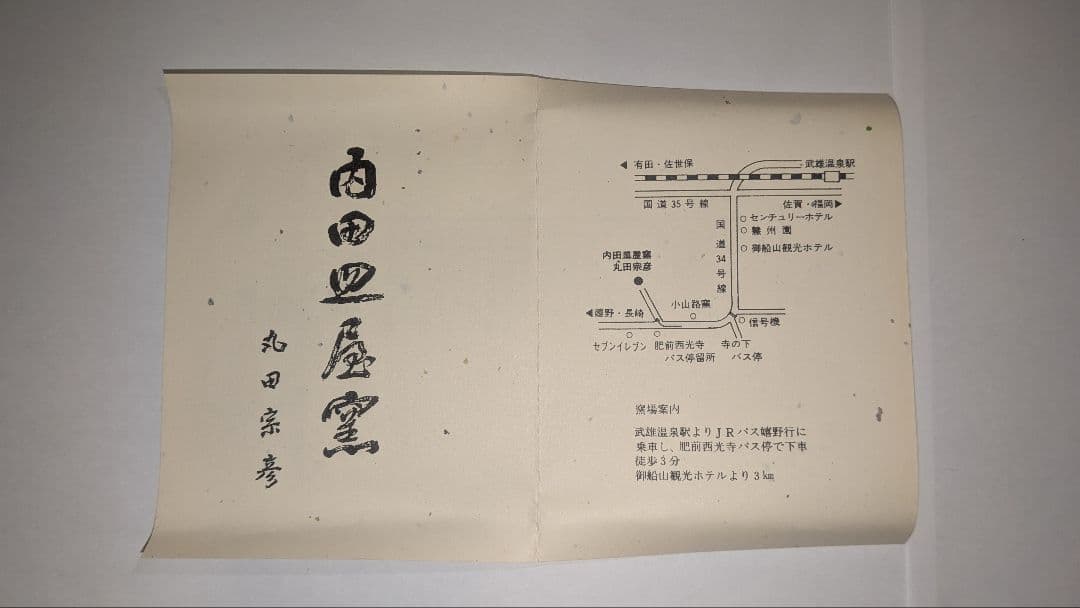 内田皿屋窯
丸田宗彦
◀有田・佐世保
武雄温泉駅
国道35号線
佐賀・福岡▶
国道34号線
センチュリーホテル
御船山観光ホテル
内田皿屋窯
丸田宗彦
小山路窯
◀嬉野・長崎
信号機
セブンイレブン
肥前西光寺
バス停留所
寺の下
バス停
窯場案内
武雄温泉駅よりJRバス嬉野行に
乗車し、肥前西光寺バス停で下車
徒歩3分
御船山観光ホテルより3km